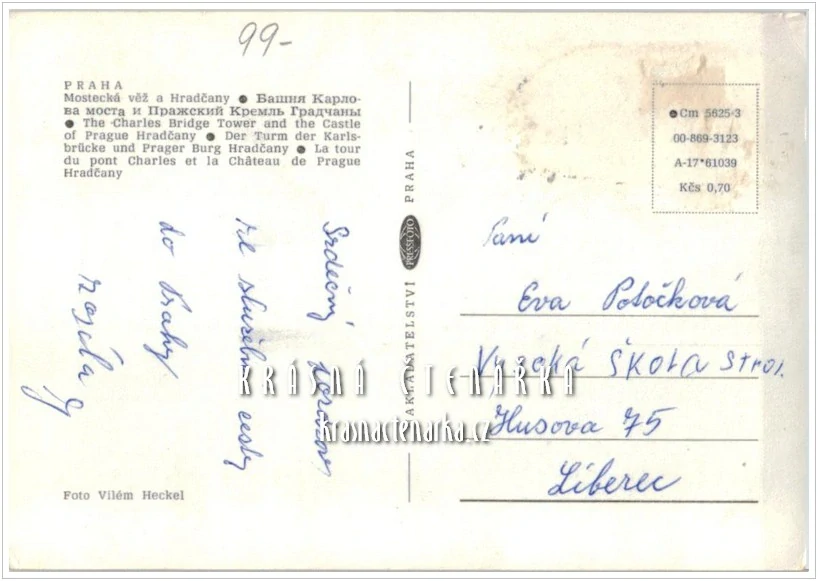 99-
PRAHA
Mostecká věž a Hradčany ● Башня Карло-
ва моста и Пражский Кремль Градчаны
● The Charles Bridge Tower and the Castle
of Prague Hradčany ● Der Turm der Karls-
brücke und Prager Burg Hradčany ● La tour
du pont Charles et la Château de Prague
Hradčany
Srdečný pozdrav
ze služební cesty
do Prahy
zasílá
Foto Vilém Heckel
NAKLADATELSTVÍ PRESSFOTO PRAHA
Cm 5625-3
00-869-3123
A-17*61039
Kčs 0,70
Paní
Eva Potočková
Vysoká škola stroj.
Husova 75
Liberec
KRÁSNÁ ČTENÁRKA
krasnactenarka.cz